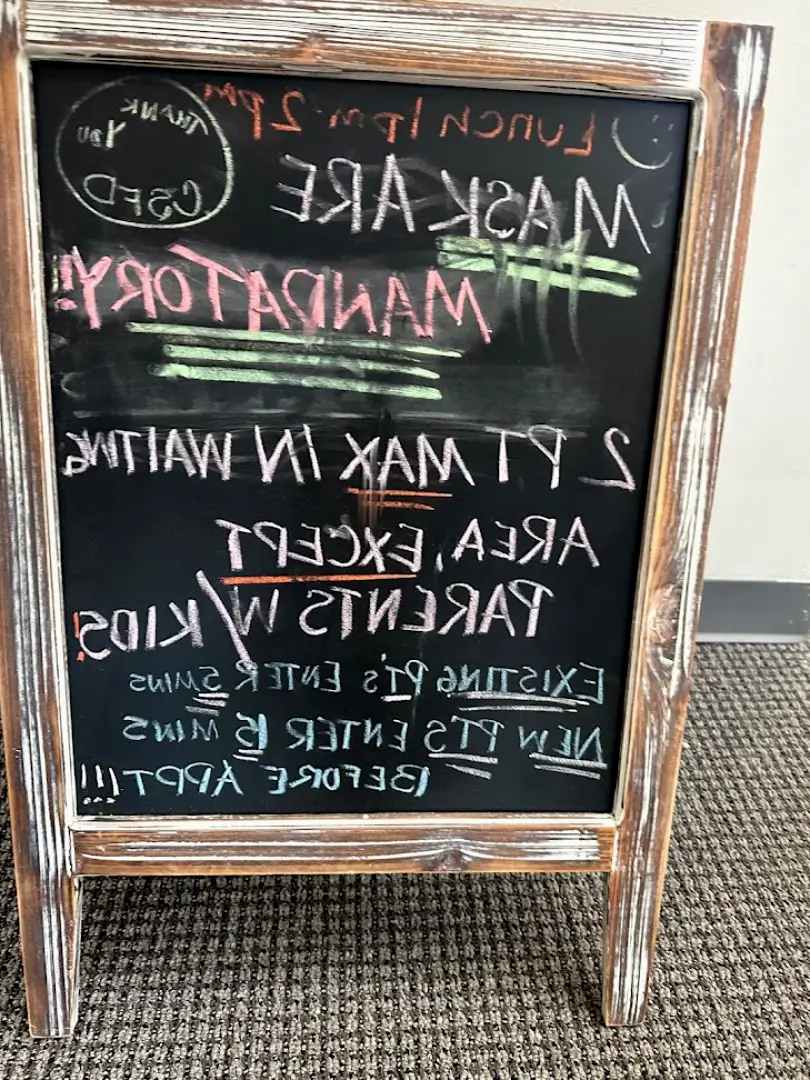 Lunch 1pm-2pm
THANK
YOU
CSFD
MASK ARE
MANDATORY!!
2 PT MAX IN WAITNG
AREA, EXCEPT
PARENTS W/KIDS!
EXISTING PT'S ENTER 5 MINS
NEW PT'S ENTER 15 MINS
BEFORE APPT!!!